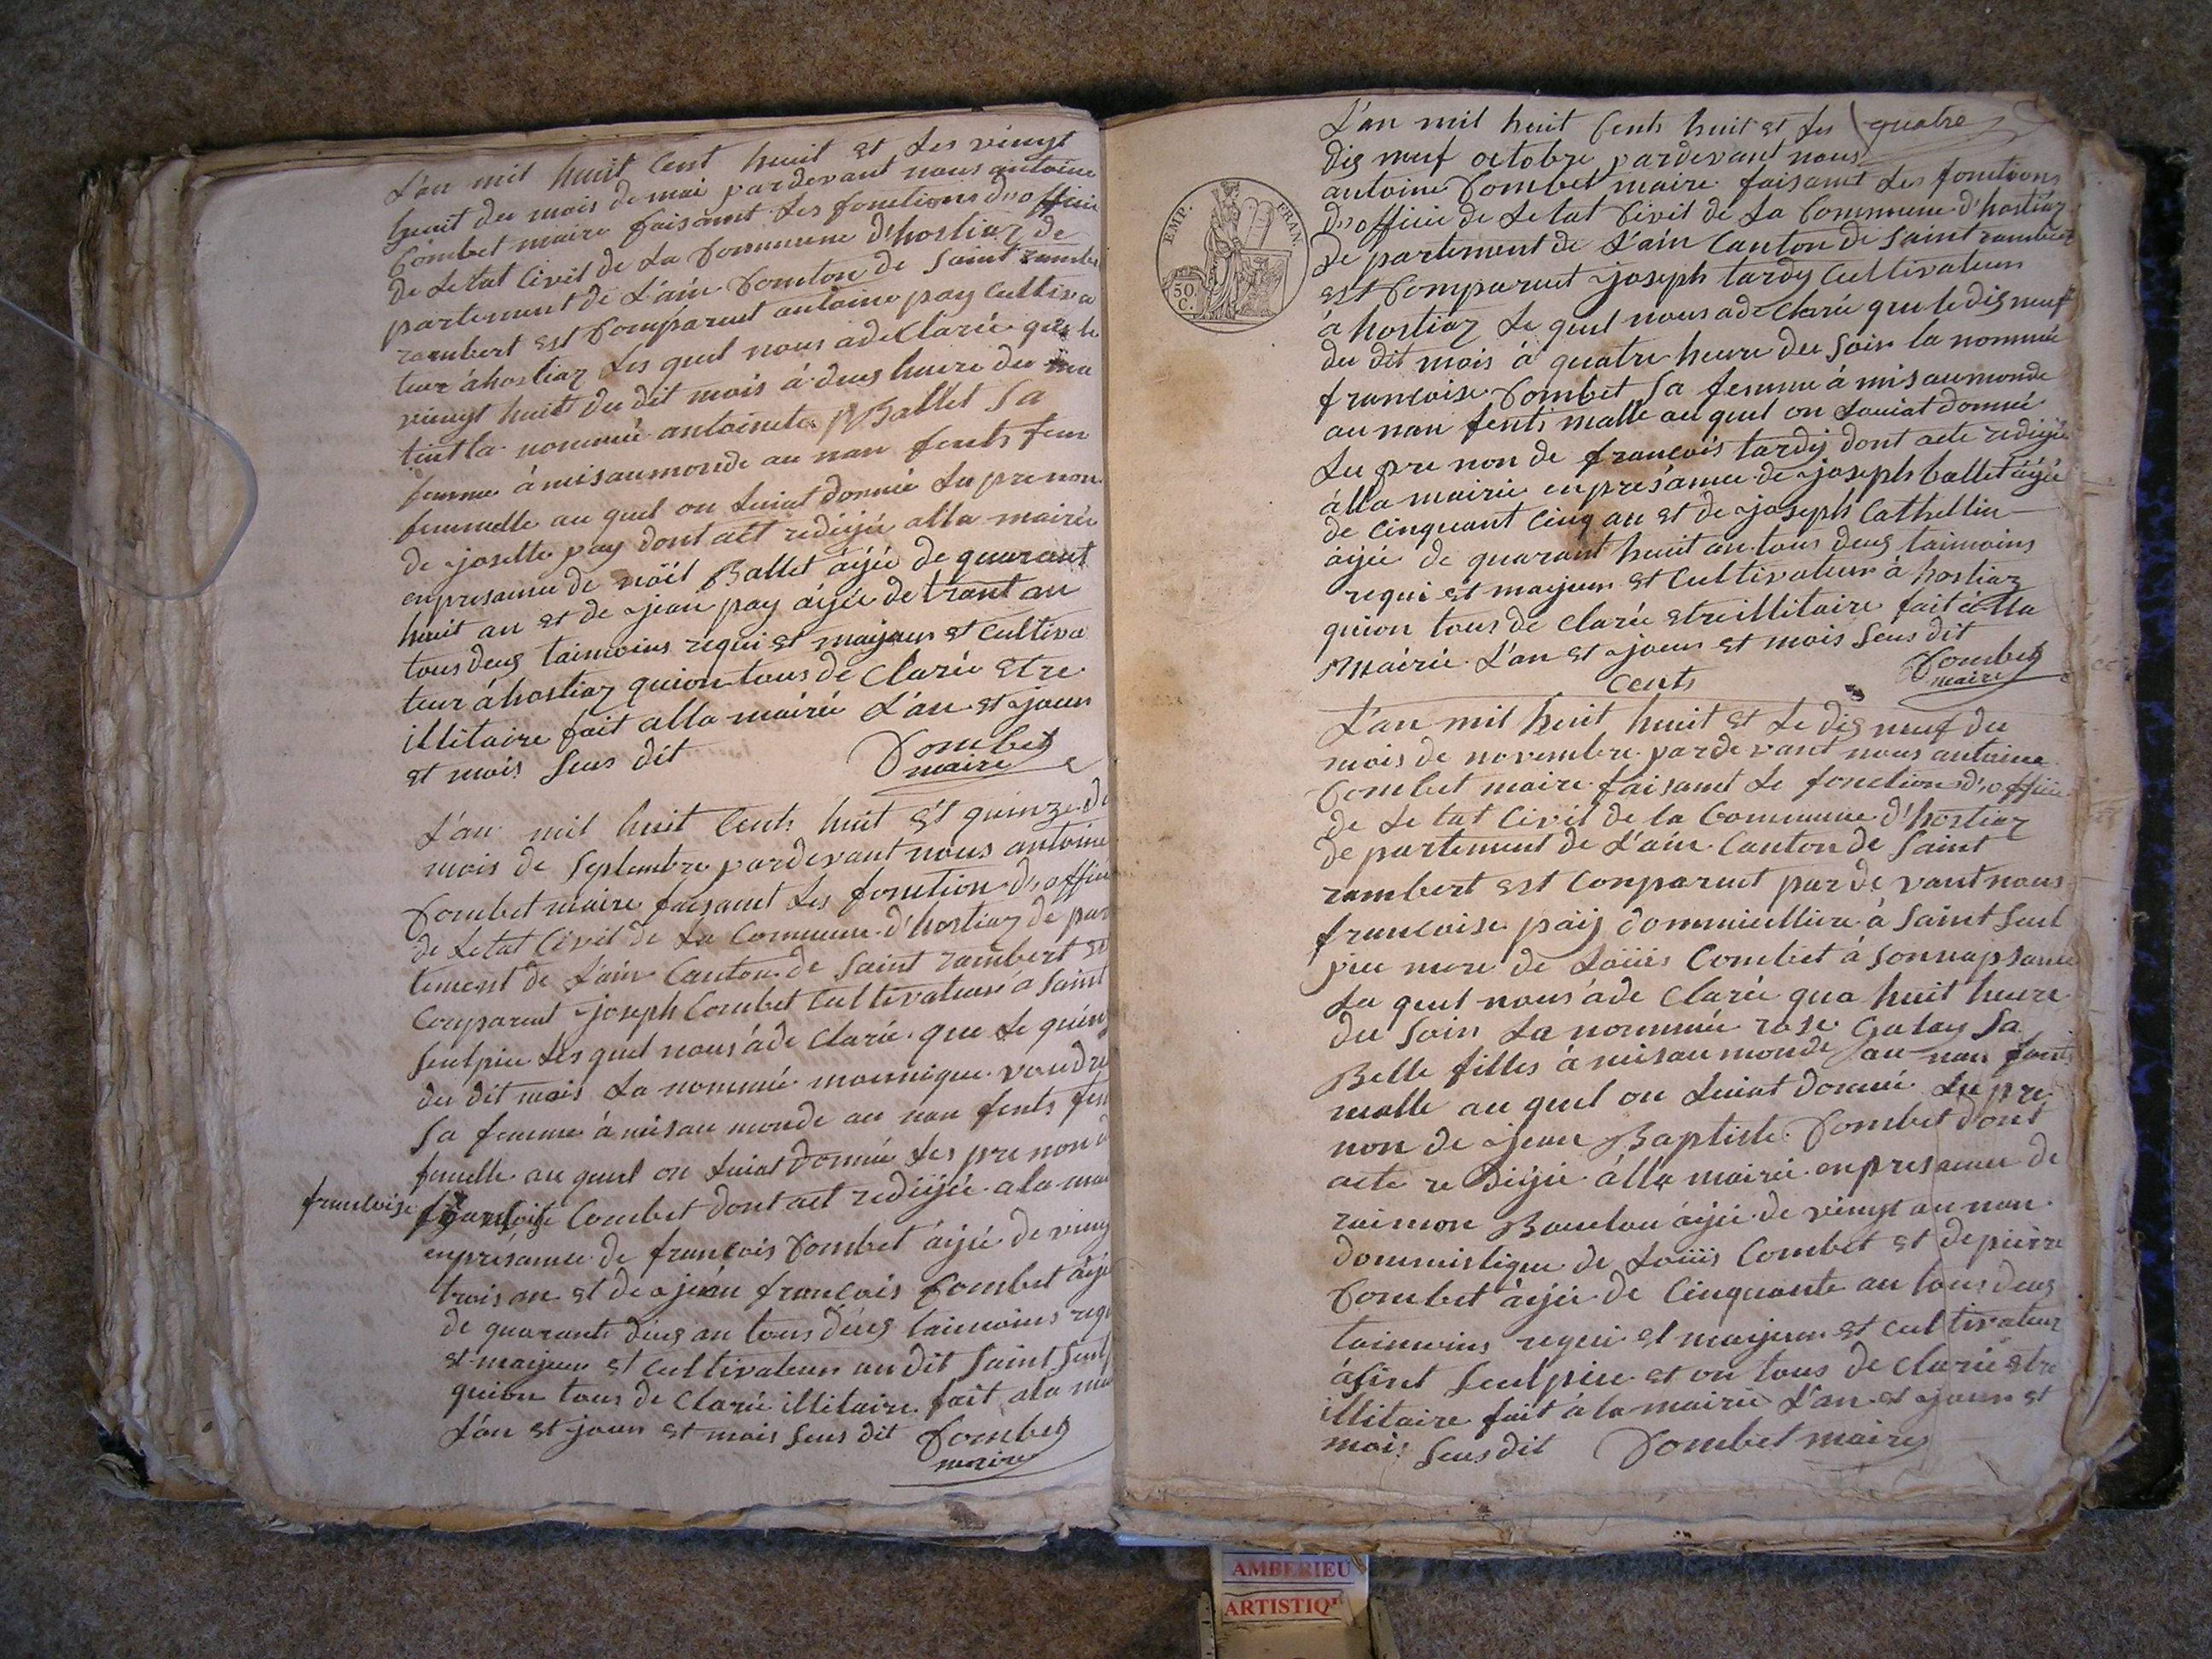 L'an mil huit Cent huit et Les vingt
huit du mois de mai pardevant nous antoine
Combet maire faisant Les fonctions d'officie
de Letat Civil de La Commune d'hostiaz de
partement de L'ain Conton de Saint rambe
rambert est Comparut antoine pay Cultiva
teur à hostiaz Les quel nous adeClarée que le
vingt huit du dit mois à deus heure du ma
tint la nommée antoinete Ballet Sa
femme à mis aumonde au nan fents fem
femmelle au quel on Luiat donnée Lu prenon
de josette pay dont act redigée alla mairée
enpresamce de nöël Ballet àijée de quarant
huit an et de jean pay àijée de trant an
tous deus taimoins requi et maijeur et Cultiva
teur àhostiaz quion tous de Clarée etre
illitaire fait alla mairée L'an et jour
et mois Sus dit
Combet
maire
L'an mil huit Cents huit et quinze du
mois de Septembre pardevant nous antoine
Combet maire faisamt Les fonction d'officie
de Letat Civil de La Commune d'hostiaz de par
tement de L'ain Canton de Saint rambert est
Comparut joseph Combet Cultivateur à Saint
Seulpice Les quel nous àde Clarée que Le quinz
du dit mois La nommée mounique
Sa femme à mis au monde au nan fents fem
femelle au quel on Luiat donnée Les prenon d
francoise
Combet dont act redijée a la mai
enprésamce de francois Combet àijée de ving
trois an et de jean francois Combet àijé
de quarante deus an tous deus taimoins requ
et maijeur et Cultivateur au dit Saint Seulp
quion tous de Clarée illitaire fait ala mai
L'an et jour et mois Sus dit
Combet
maire
L'an mil huit Cents huit et Les
quatre
dis neuf octobre pardevant nous
antoine Combet maire faisamt Les fonctions
d'officie de Letat Civil de La Commune d'hostiaz
De partement de L'ain Canton de Saint rambert
est Comparut joseph tardy Cultivateur
à hostiaz Le quel nous ade Clarée que le dis neuf
du dit mois à quatre heure du Soir la nommée
francoise Combet Sa femme à mis aumonde
au nan fents malle au quel on Luiat donnée
Lu pre non de francois tardy dont acte redigée
àlla mairie enprésamce de joseph ballet àijée
de Cinquant Cinq an et de joseph Cathellin
àijée de quarant huit an tous deus taimoins
requi et maijeur et Cultivateur à hostiaz
quion tous de Clarée etre illitaire fait àlla
Mairie L'an et jour et mois Sus dit
Combet
maire
Cents
L'an mil huit huit et Le dis neuf du
mois de novembre pardevant nous antoine
Combet maire faisamt Le fonction d'officie
de Letat Civil de la Commune d'hostiaz
de partement de L'ain Canton de Saint
rambert est Conparut pardevant nous
francoise paij dommicilliere à Saint Seul
pice mere de Loüis Combet à Sonnapsance
La quel nous àde Clarée qua huit heure
du Soir La nommée rose Galay Sa
Belle filles à mis au monde au nan fents
malle au quel on Luiat donnée Lu pre
non de jean Baptiste Combet dont
acte redijée àlla mairie enpresamce de
raimon àijée de vingt an nan
dommistique de Loüis Combet et de pierre
Combet àijée de Cinquante an tous deus
taimoins requi et maijeur et Cultivateur
à Sint Seulpice et on tous de Clarée etre
illitaire fait à la mairie L'an et jour et
mois Sus dit Combet maire
EMP. FRAN.
50
C.
AMBERIEU
ARTISTIQ